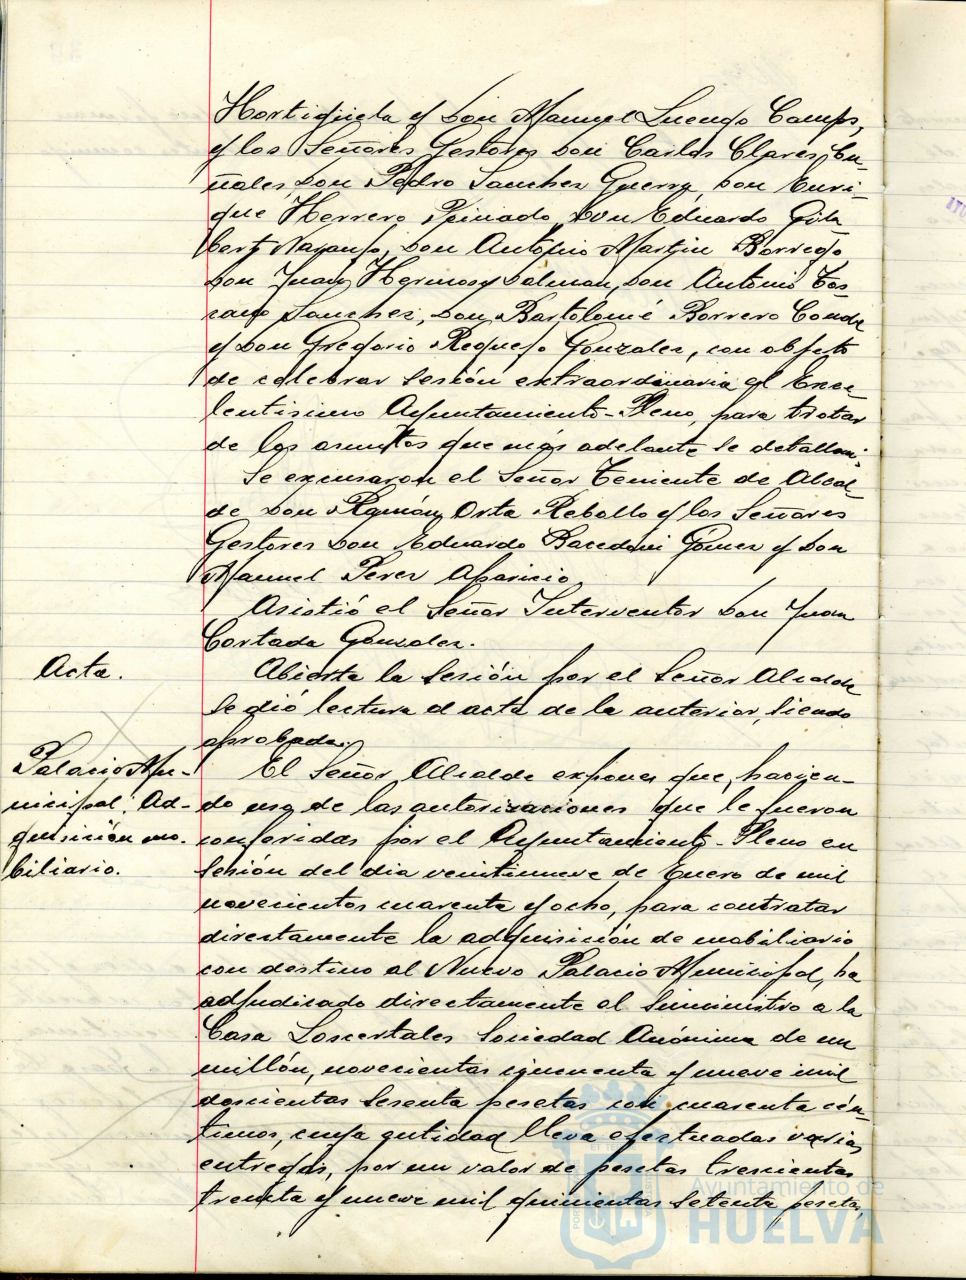 Hortigüela y Don Manuel Luengo Camps,
y los Señores Gestores Don Carlos Clares Cu-
ñales, Don Pedro Sanchez Guerra, Don Enri-
que Herrero Peinado, Don Eduardo Gila
bert Naranjo, Don Antonio Martin Borrego
Don Juan Hermoso Dalman, Don Antonio Tos-
cano Sanchez, Don Bartolomé Borrero Conde
y Don Gregorio Requejo Gonzalez, con objeto
de celebrar sesión extraordinaria el Exce-
lentisimo Ayuntamiento-Pleno, para tratar
de los asuntos que más adelante se detallan.
Se excusaron el Señor Teniente de Alcal-
de Don Ramón Orta Rebollo y los Señores
Gestores Don Eduardo Gomez y Don
Manuel Perez Aparicio
Asistió el Señor Interventor Don Juan
Cortada Gonzalez.
Acta.
Abierta la sesión por el Señor Alcalde
se dió lectura al acta de la anterior, siendo
aprobada.
Palacio Mu-
nicipal, Ad-
quisición mo-
biliario.
El Señor Alcalde expone que, hacien-
do uso de las autorizaciones que le fueron
conferidas por el Ayuntamiento-Pleno en
sesión del dia veintinueve de Enero de mil
novecientos cuarenta y ocho, para contratar
directamente la adquisición de mobiliario
con destino al Nuevo Palacio Municipal, ha
adjudicado directamente el suministro a la
Casa Loscertales Sociedad Anónima de un
millón, novecientas cincuenta y nueve mil
doscientas sesenta pesetas con cuarenta cén-
timos, cuya cantidad lleva efectuadas varias
entregas, por un valor de pesetas trescientas
treinta y nueve mil quinientas setenta pesetas,
Ayuntamiento de
HUELVA